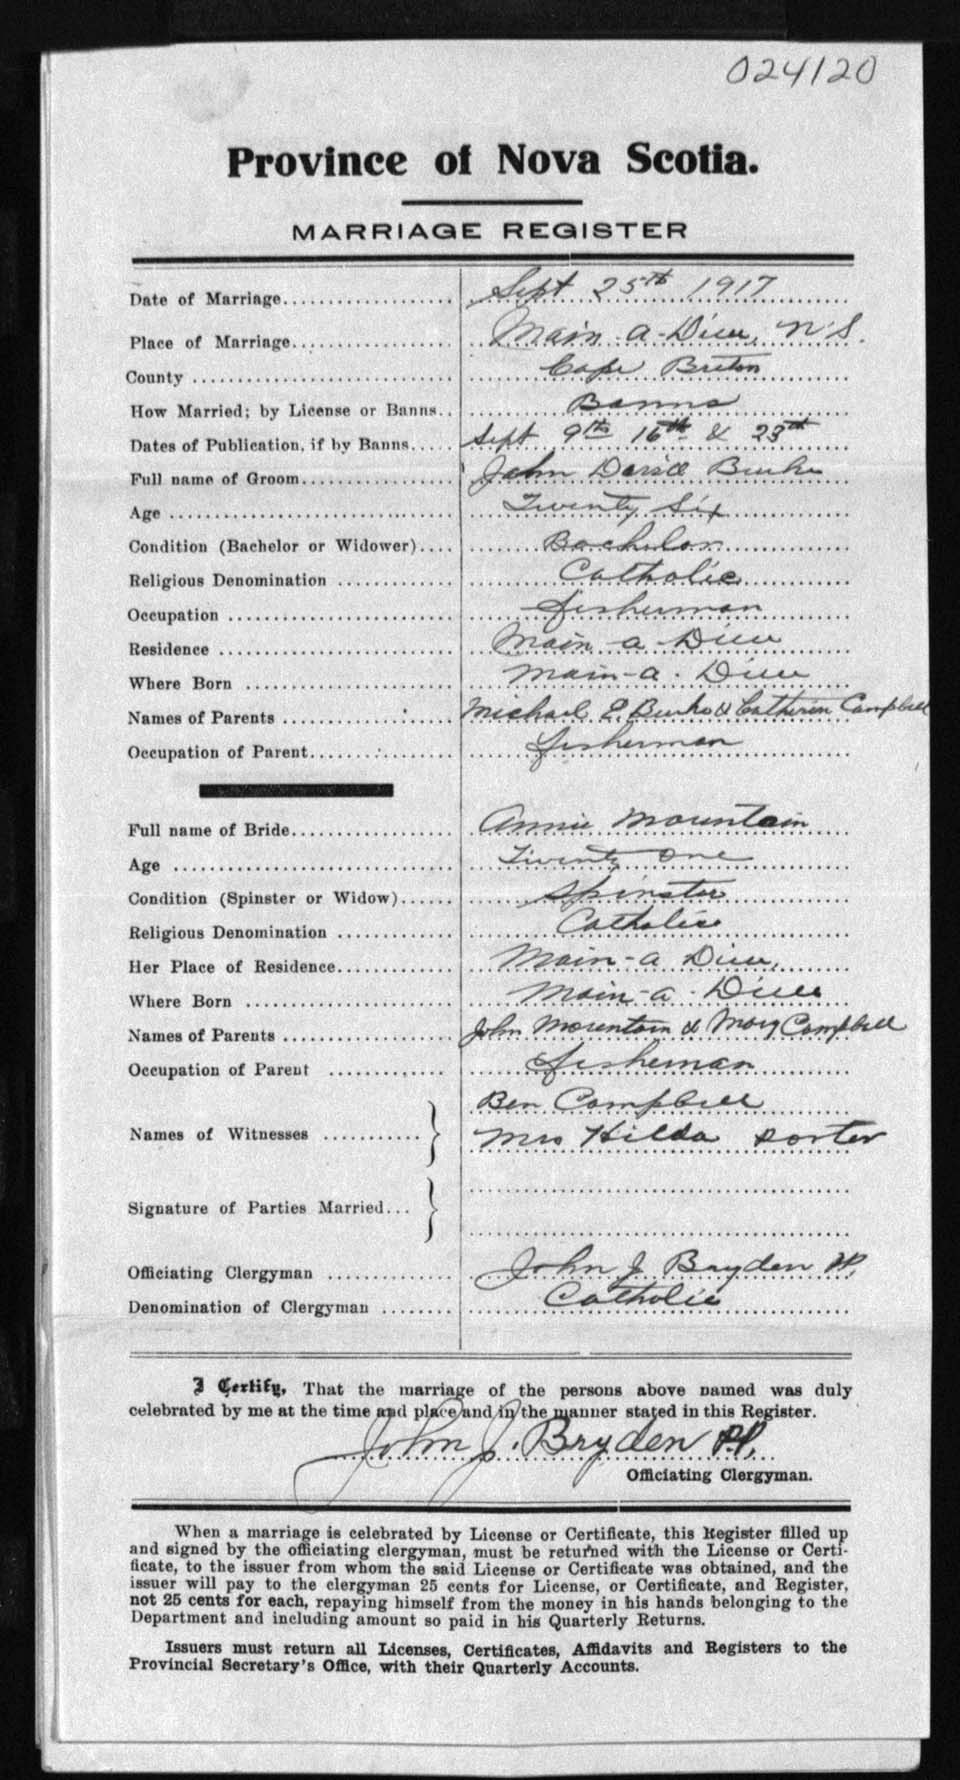 024120
Province of Nova Scotia.
MARRIAGE REGISTER
Date of Marriage Sept 25th 1917
Place of Marriage Main-a-Dieu, N.S.
County Cape Breton
How Married; by License or Banns Banns
Dates of Publication, if by Banns Sept 9th 16th & 23rd
Full name of Groom John Burke
Age Twenty Six
Condition (Bachelor or Widower) Bachelor
Religious Denomination Catholic
Occupation fisherman
Residence Main-a-Dieu
Where Born Main-a-Dieu
Names of Parents Michael E. Burke & Catherine Campbell
Occupation of Parent fisherman
Full name of Bride Annie Mountain
Age Twenty One
Condition (Spinster or Widow) Spinster
Religious Denomination Catholic
Her Place of Residence Main-a Dieu,
Where Born Main-a-Dieu
Names of Parents John Mountain & Mary Campbell
Occupation of Parent fisherman
Names of Witnesses Ben Campbell
Mrs Hilda Porter
Signature of Parties Married
Officiating Clergyman John J Bryden P.P.
Denomination of Clergyman Catholic
I Certify, That the marriage of the persons above named was duly
celebrated by me at the time and place and in the manner stated in this Register.
John J. Bryden P.P.
Officiating Clergyman.
When a marriage is celebrated by License or Certificate, this Register filled up
and signed by the officiating clergyman, must be returned with the License or Certi-
ficate, to the issuer from whom the said License or Certificate was obtained, and the
issuer will pay to the clergyman 25 cents for License, or Certificate, and Register,
not 25 cents for each, repaying himself from the money in his hands belonging to the
Department and including amount so paid in his Quarterly Returns.
Issuers must return all Licenses, Certificates, Affidavits and Registers to the
Provincial Secretary's Office, with their Quarterly Accounts.